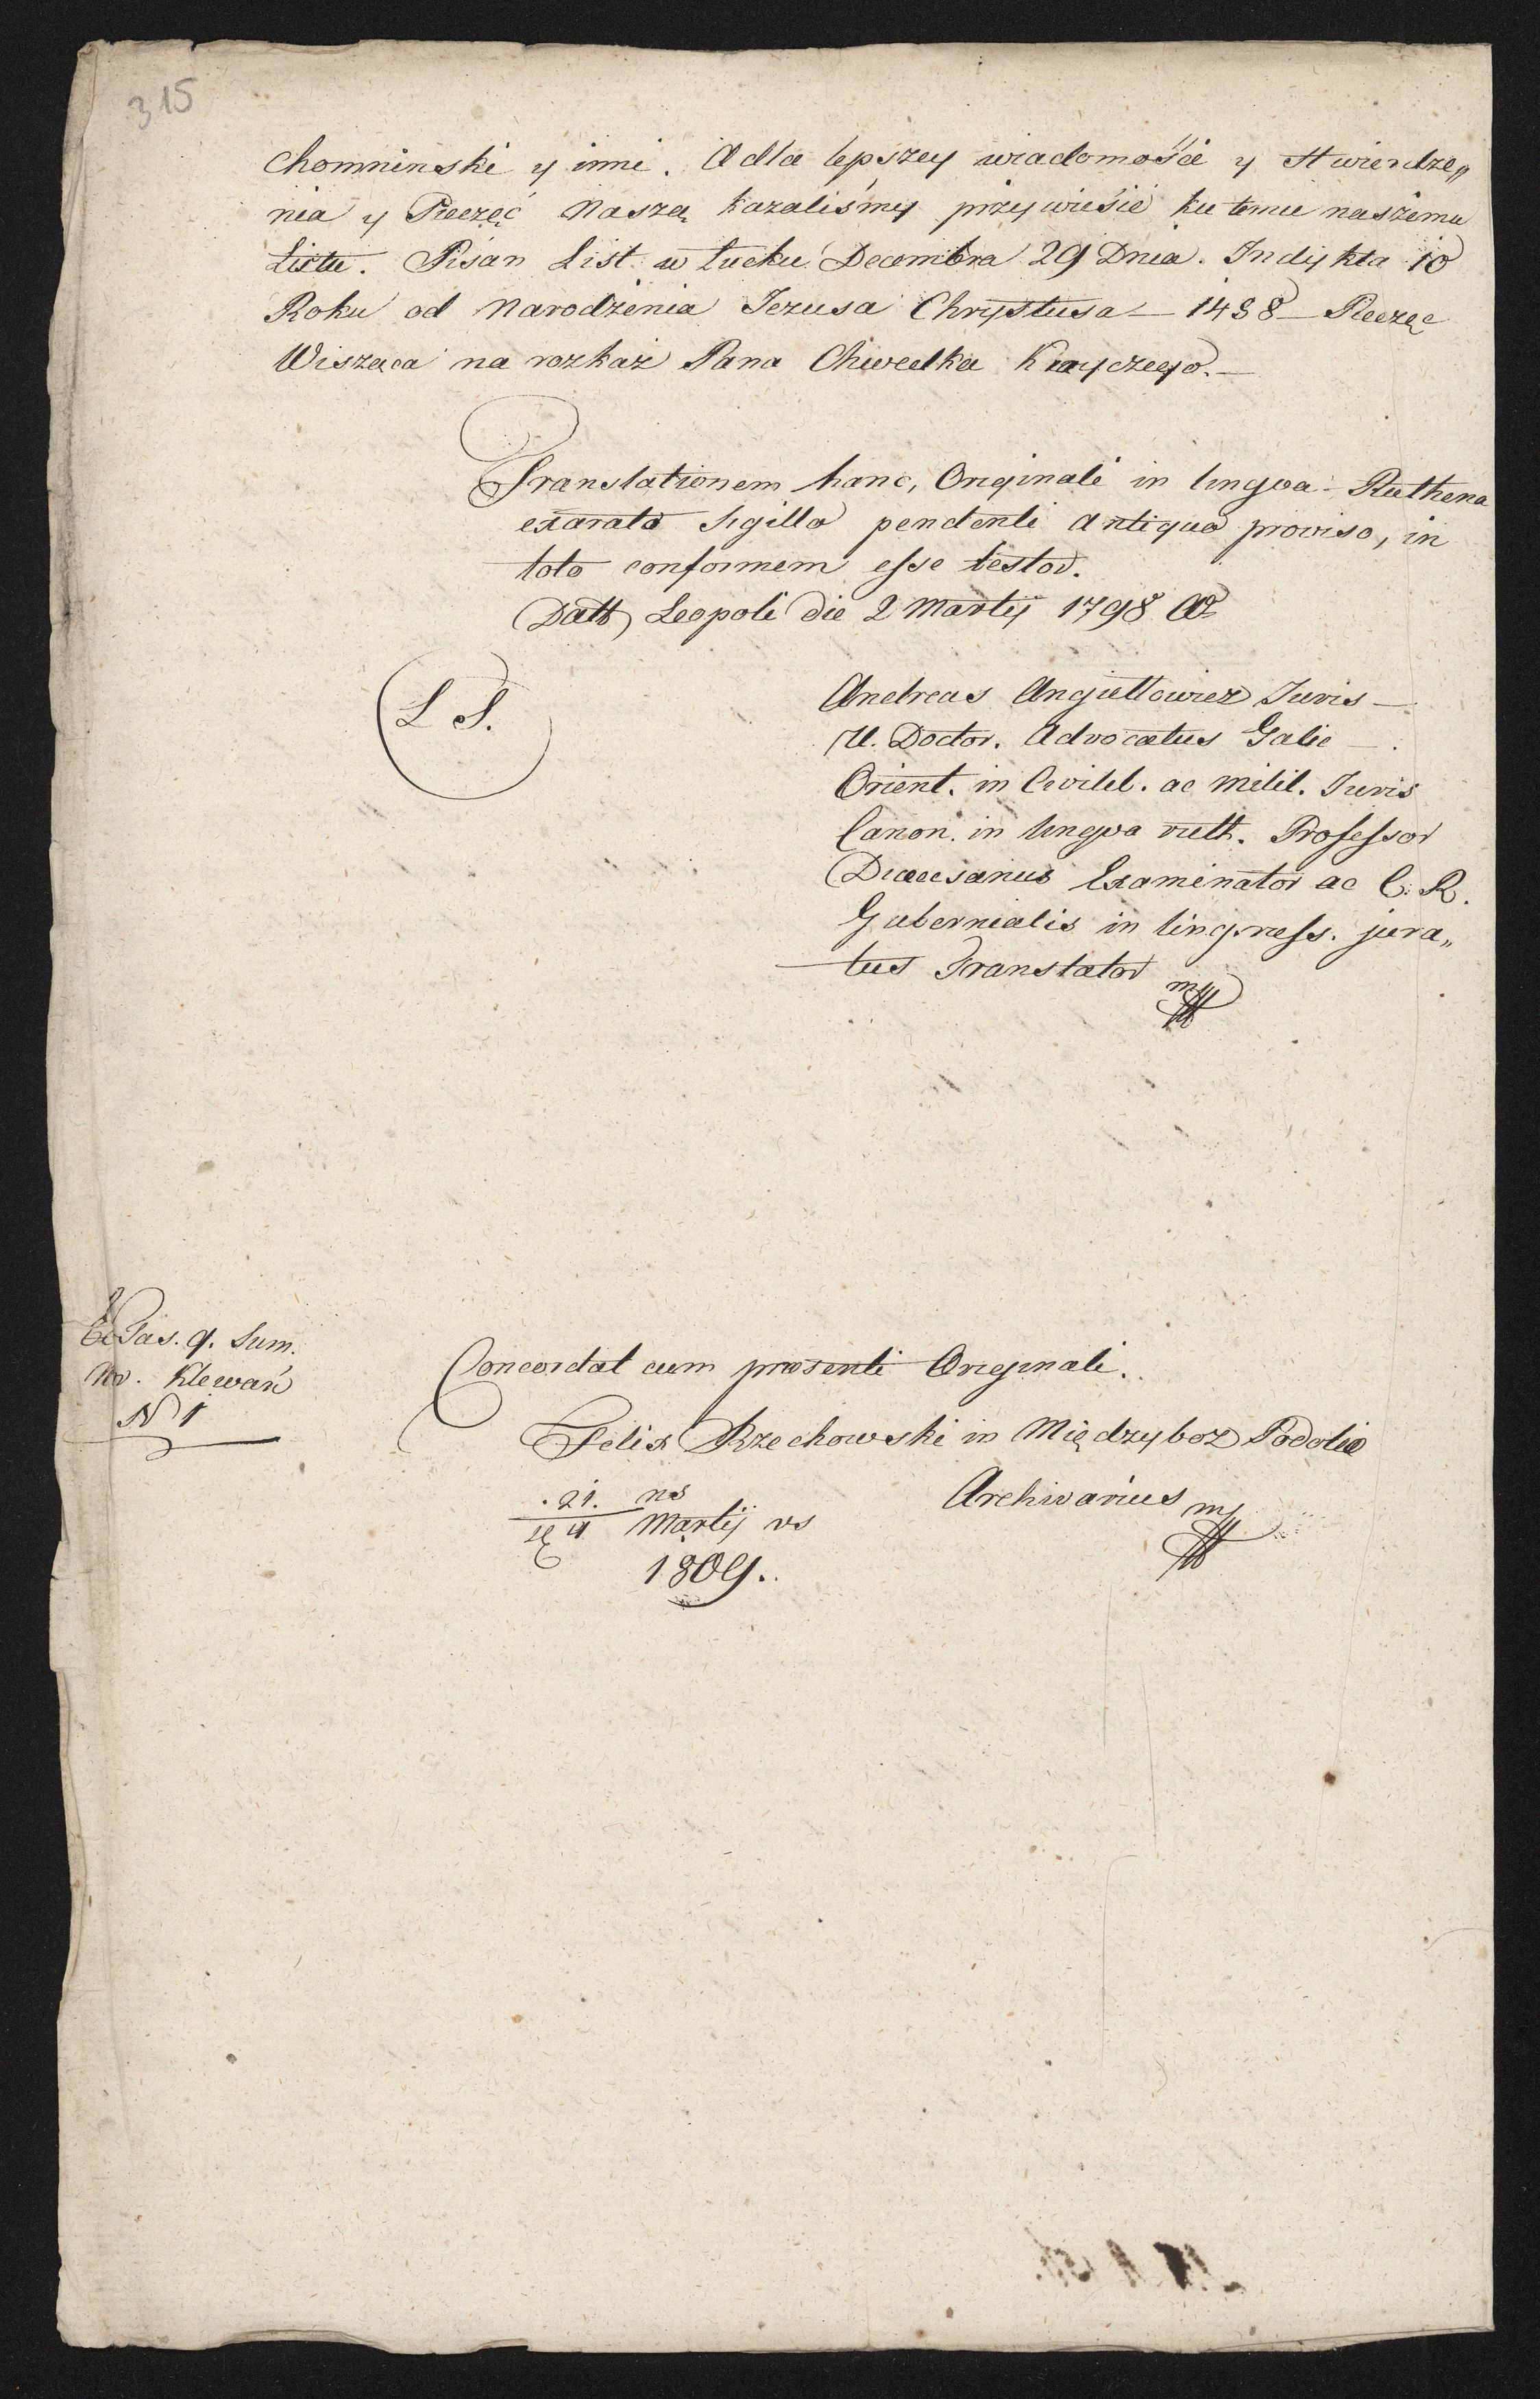 315
Chomninski y inni. A dla lepszey wiadomości y stwierdze„
nia y Pieczęć Naszą kazaliśmy przywiesić ku temu naszemu
Listu. Pisan List w Łucku Decembra 29 Dnia. Indykta 10
Roku od Narodzenia Jezusa Chrystusa — 1438 — Pieczęć
Wisząca na rozkaz Pana Chwedka Krayczego. —
Translationem hanc, Originali in lingva Ruthena
exarato Sigillo pendenti Antiquo proviso, in
toto conformem esse testor.
Datt Leopoli die 2 Martij 1798 Ao
L S.
Andreas Angiełłowicz Juris —
U. Doctor. Advocatus Galic — .
Orient. in Civilib. ac milit. Juris
Canon. in lingva ruth. Professor
Diaecesanus Examinator ac C. R.
Gubernialis in ling. ross. jura„
tus Translator mp
Fas. 9. Sum.
No. Klewań
N 1
Concordat cum praesenti Originali.
Felix Rzechowski in Międzyboż Podolie
Archivarius mp
21. ns
Martij vs
1809.